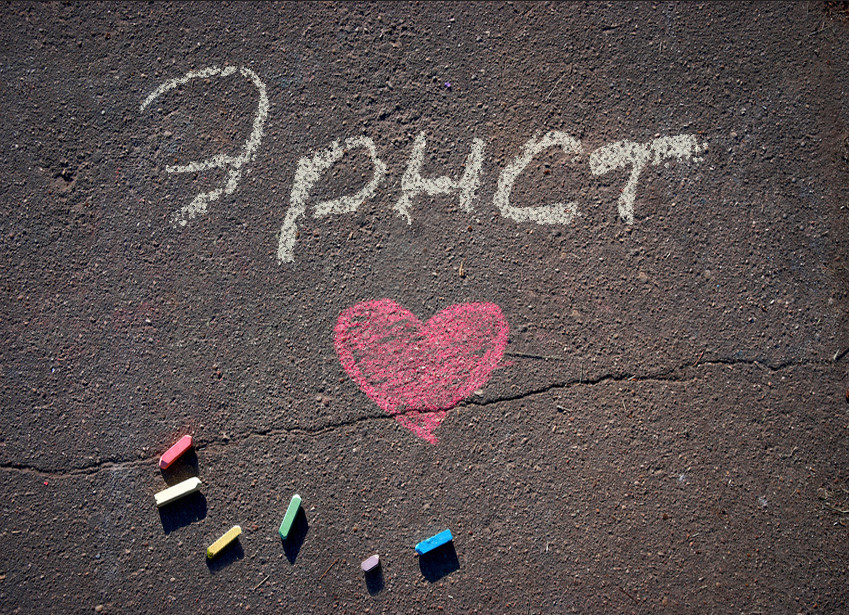 Эрнст